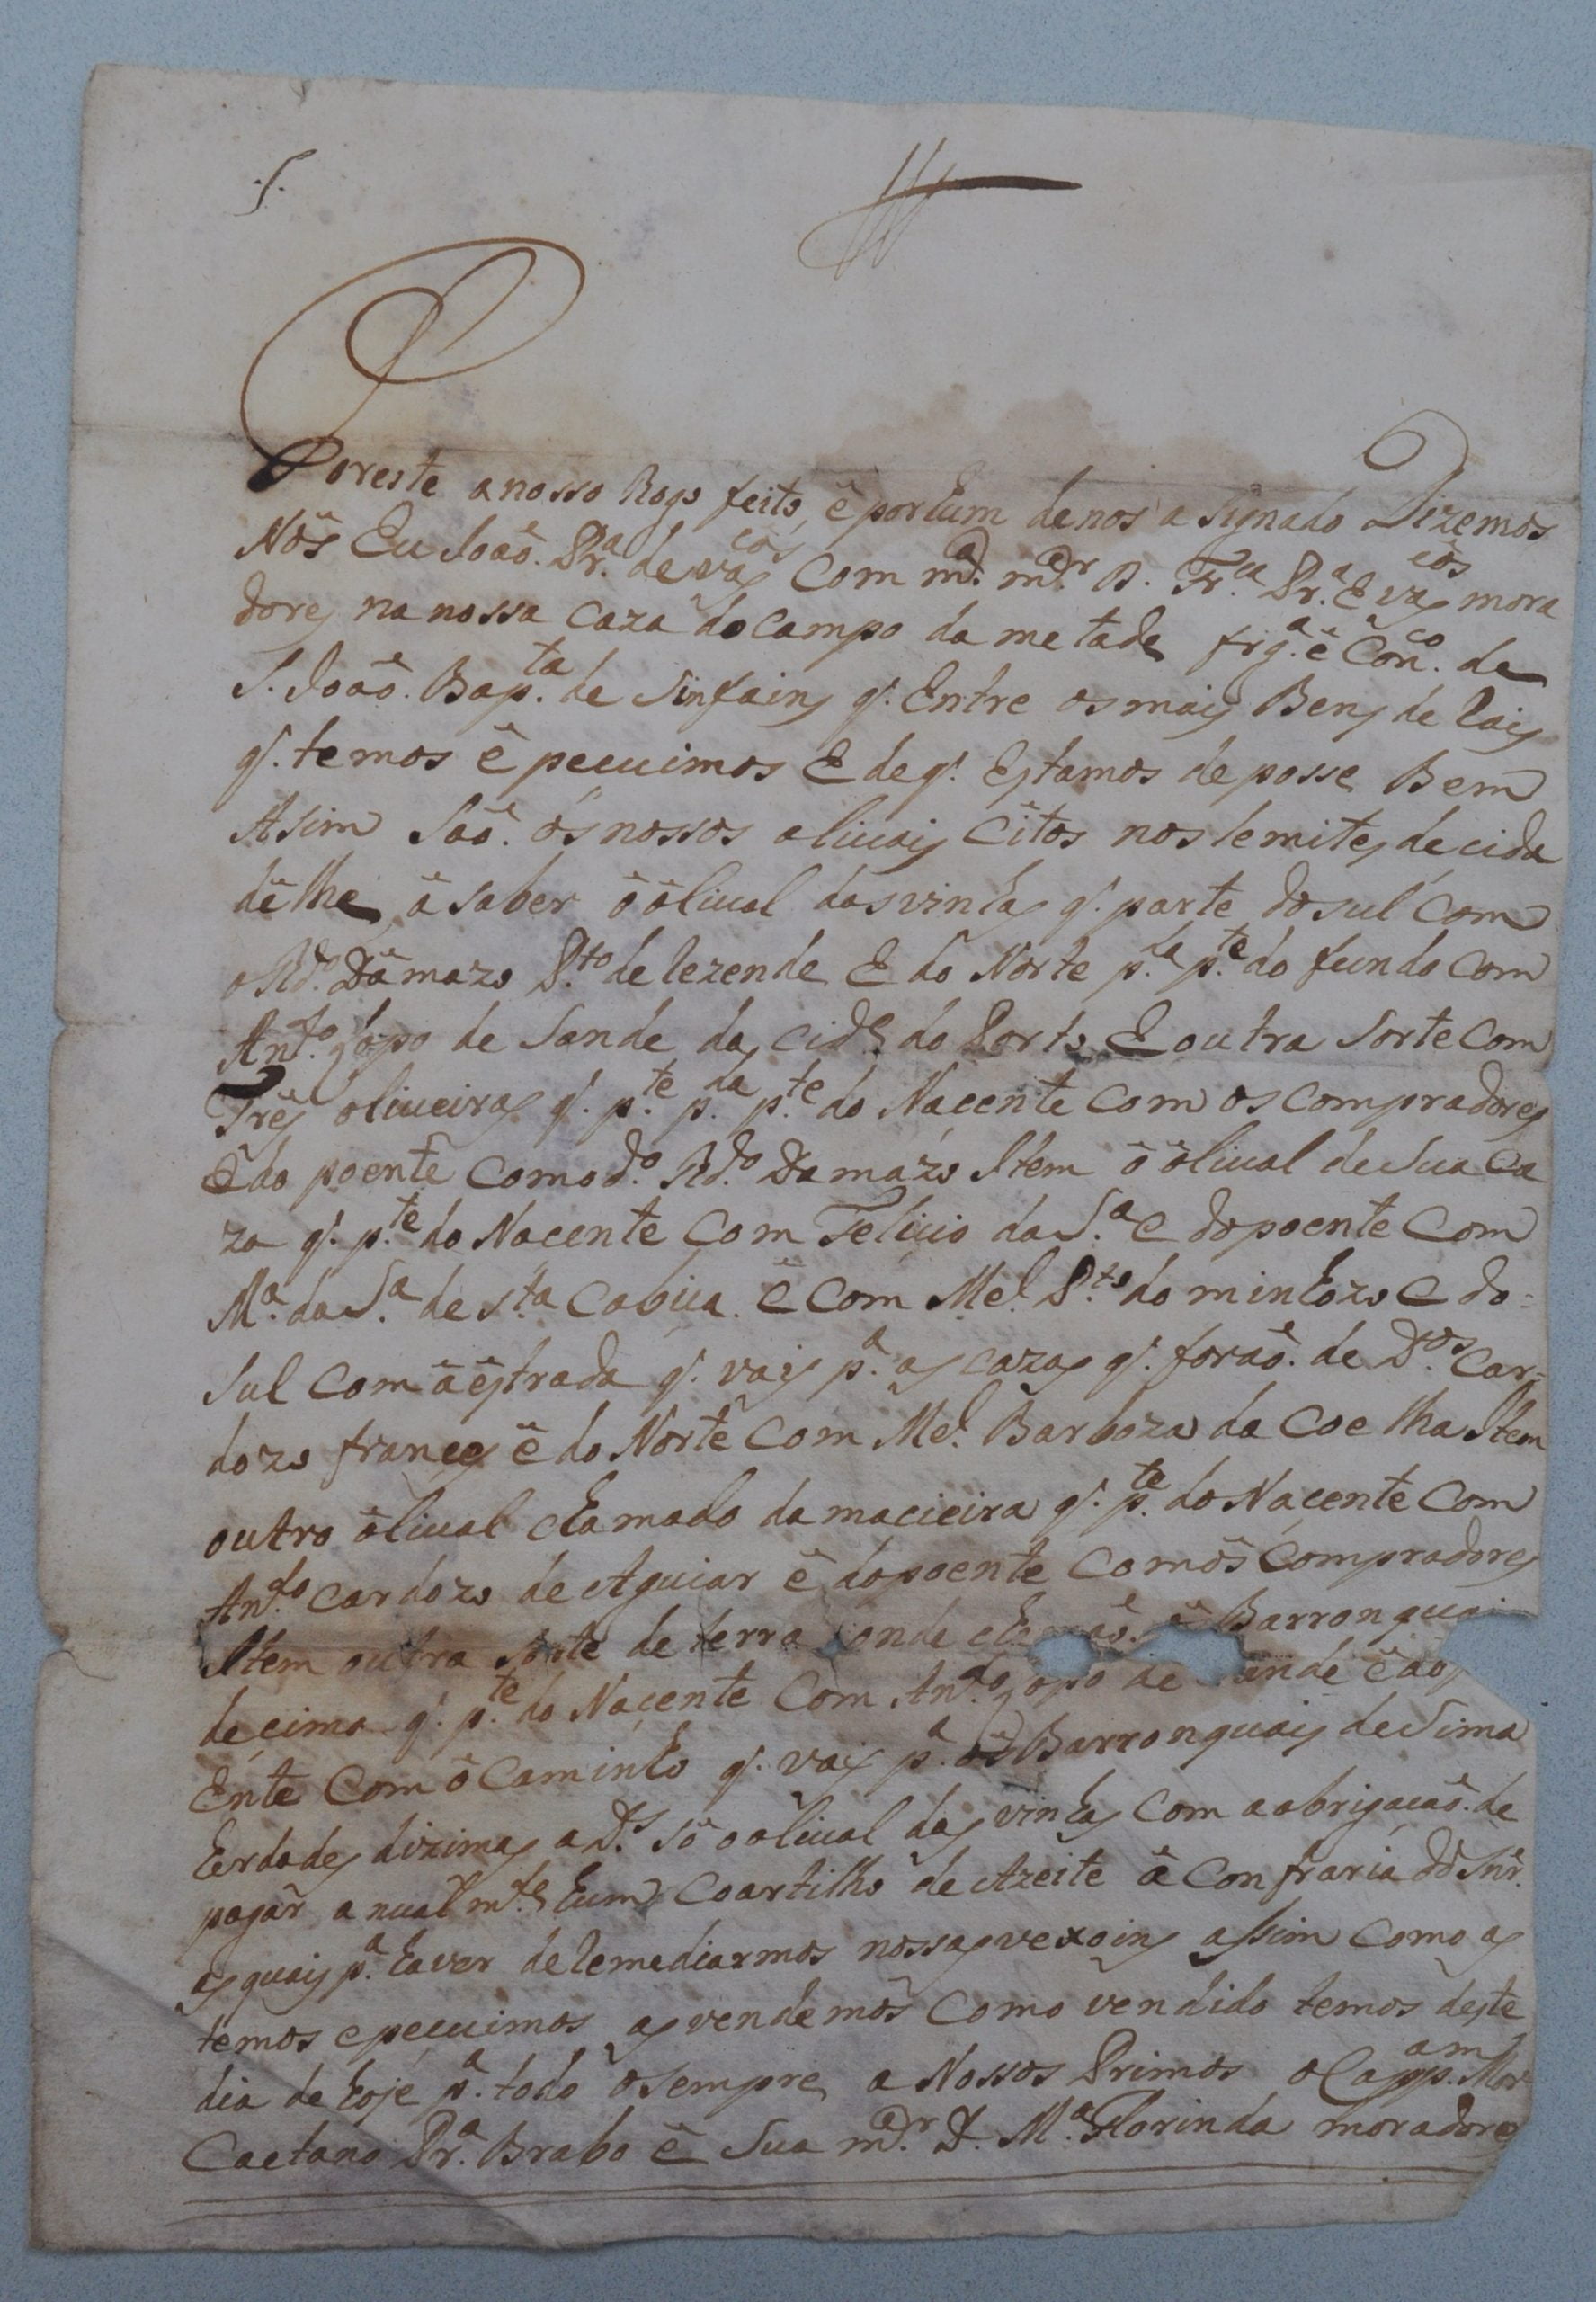 Por este a nosso Rogo feito, ê por hum de nos a signado Dizemos
Nôs Eu João. Pr.ª de vas.cos Com m.ª m.er D. Fr.ca Pr.ª E vas.cos mora
dores na nossa Caza do Campo da metade frg.ª ê Con.co de
S. João. Bap.ta de Sinfains q'. Entre os mais Bens de Rais
q'. temos ê pecuimos E de q'. Estamos de posse Bem
Asim São. ôs nossos olivais Citos nos lemites de cida
dêlhe, â saber ô ôlival das vinhas q'. parte do sul Com
o Rd.º Dâmazo P.to de Rezende E do Norte p.la p.te do fundo Com
Ant.º Lopo de Sande da Cid.e do Porto E outra Sorte Com
Três oliveiras q'. p.te p.la p.te do Nacente Com os Compradores
ê do poente Com o d.º Rd.º Damazo Item ô ôlival de Sua Ca
za q'. p.te do Nacente Com Felicio da S.ª e do poente Com
M.ª da S.ª de S.ta Cabiua ê Com Mel. P.to do minhozo e do=
Sul Com â êstrada q'. vai p.ª as cazas q'. forão. de D.os Car=
dozo frances ê do Norte Com Mel. Barboza da Coelha Item
outro ôlival chamado da macieira q'. p.te do Nacente Com
Ant.º Cardozo de Aguiar ê do poente Com ôs Compradores
Item outra sorte de terra onde Barronquai
de cima q'. p.te do Nacente Com Ant.º Lopo de ande ê ao
Ente Com ô Caminho q'. vai p.ª ôs Barronquais de Sima
herdades dizimas a D.s Sô o olival das vinhas Com a obrigação. de
pagâr anualm.te hum Coartilho de Azeite â Confraria do Snr.
as quais p.ª haver de Remediarmos nossas vexoins assim Como as
temos e pecuimos as vendemôs Como vendido temos deste
dia de hoje p.ª todo ô sempre a Nossos Primos o Cap.am Mor
Caetano Pr.ª Brabo ê Sua m.er D. M.ª Florinda moradores